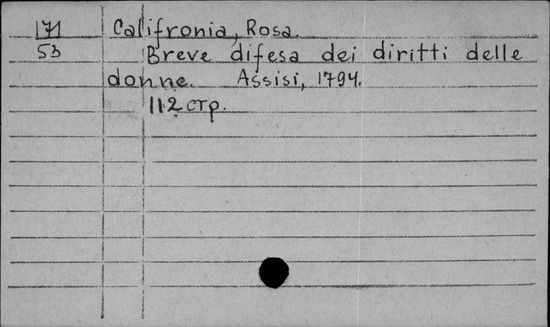 171 Califronia, Rosa.
53 Breve difesa dei diritti delle
donne. Assisi, 1794.
112 стр.